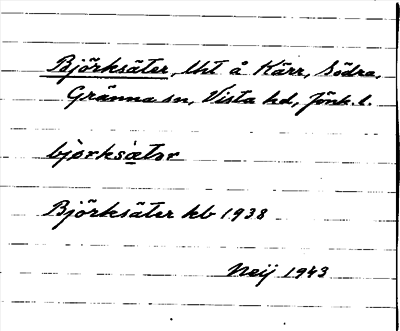 Björksäter, lht å Kärr, Södra,
Gränna sn, Vista hd, Jönk. l.
björksätər
Björksäter kb 1938
Neij 1943